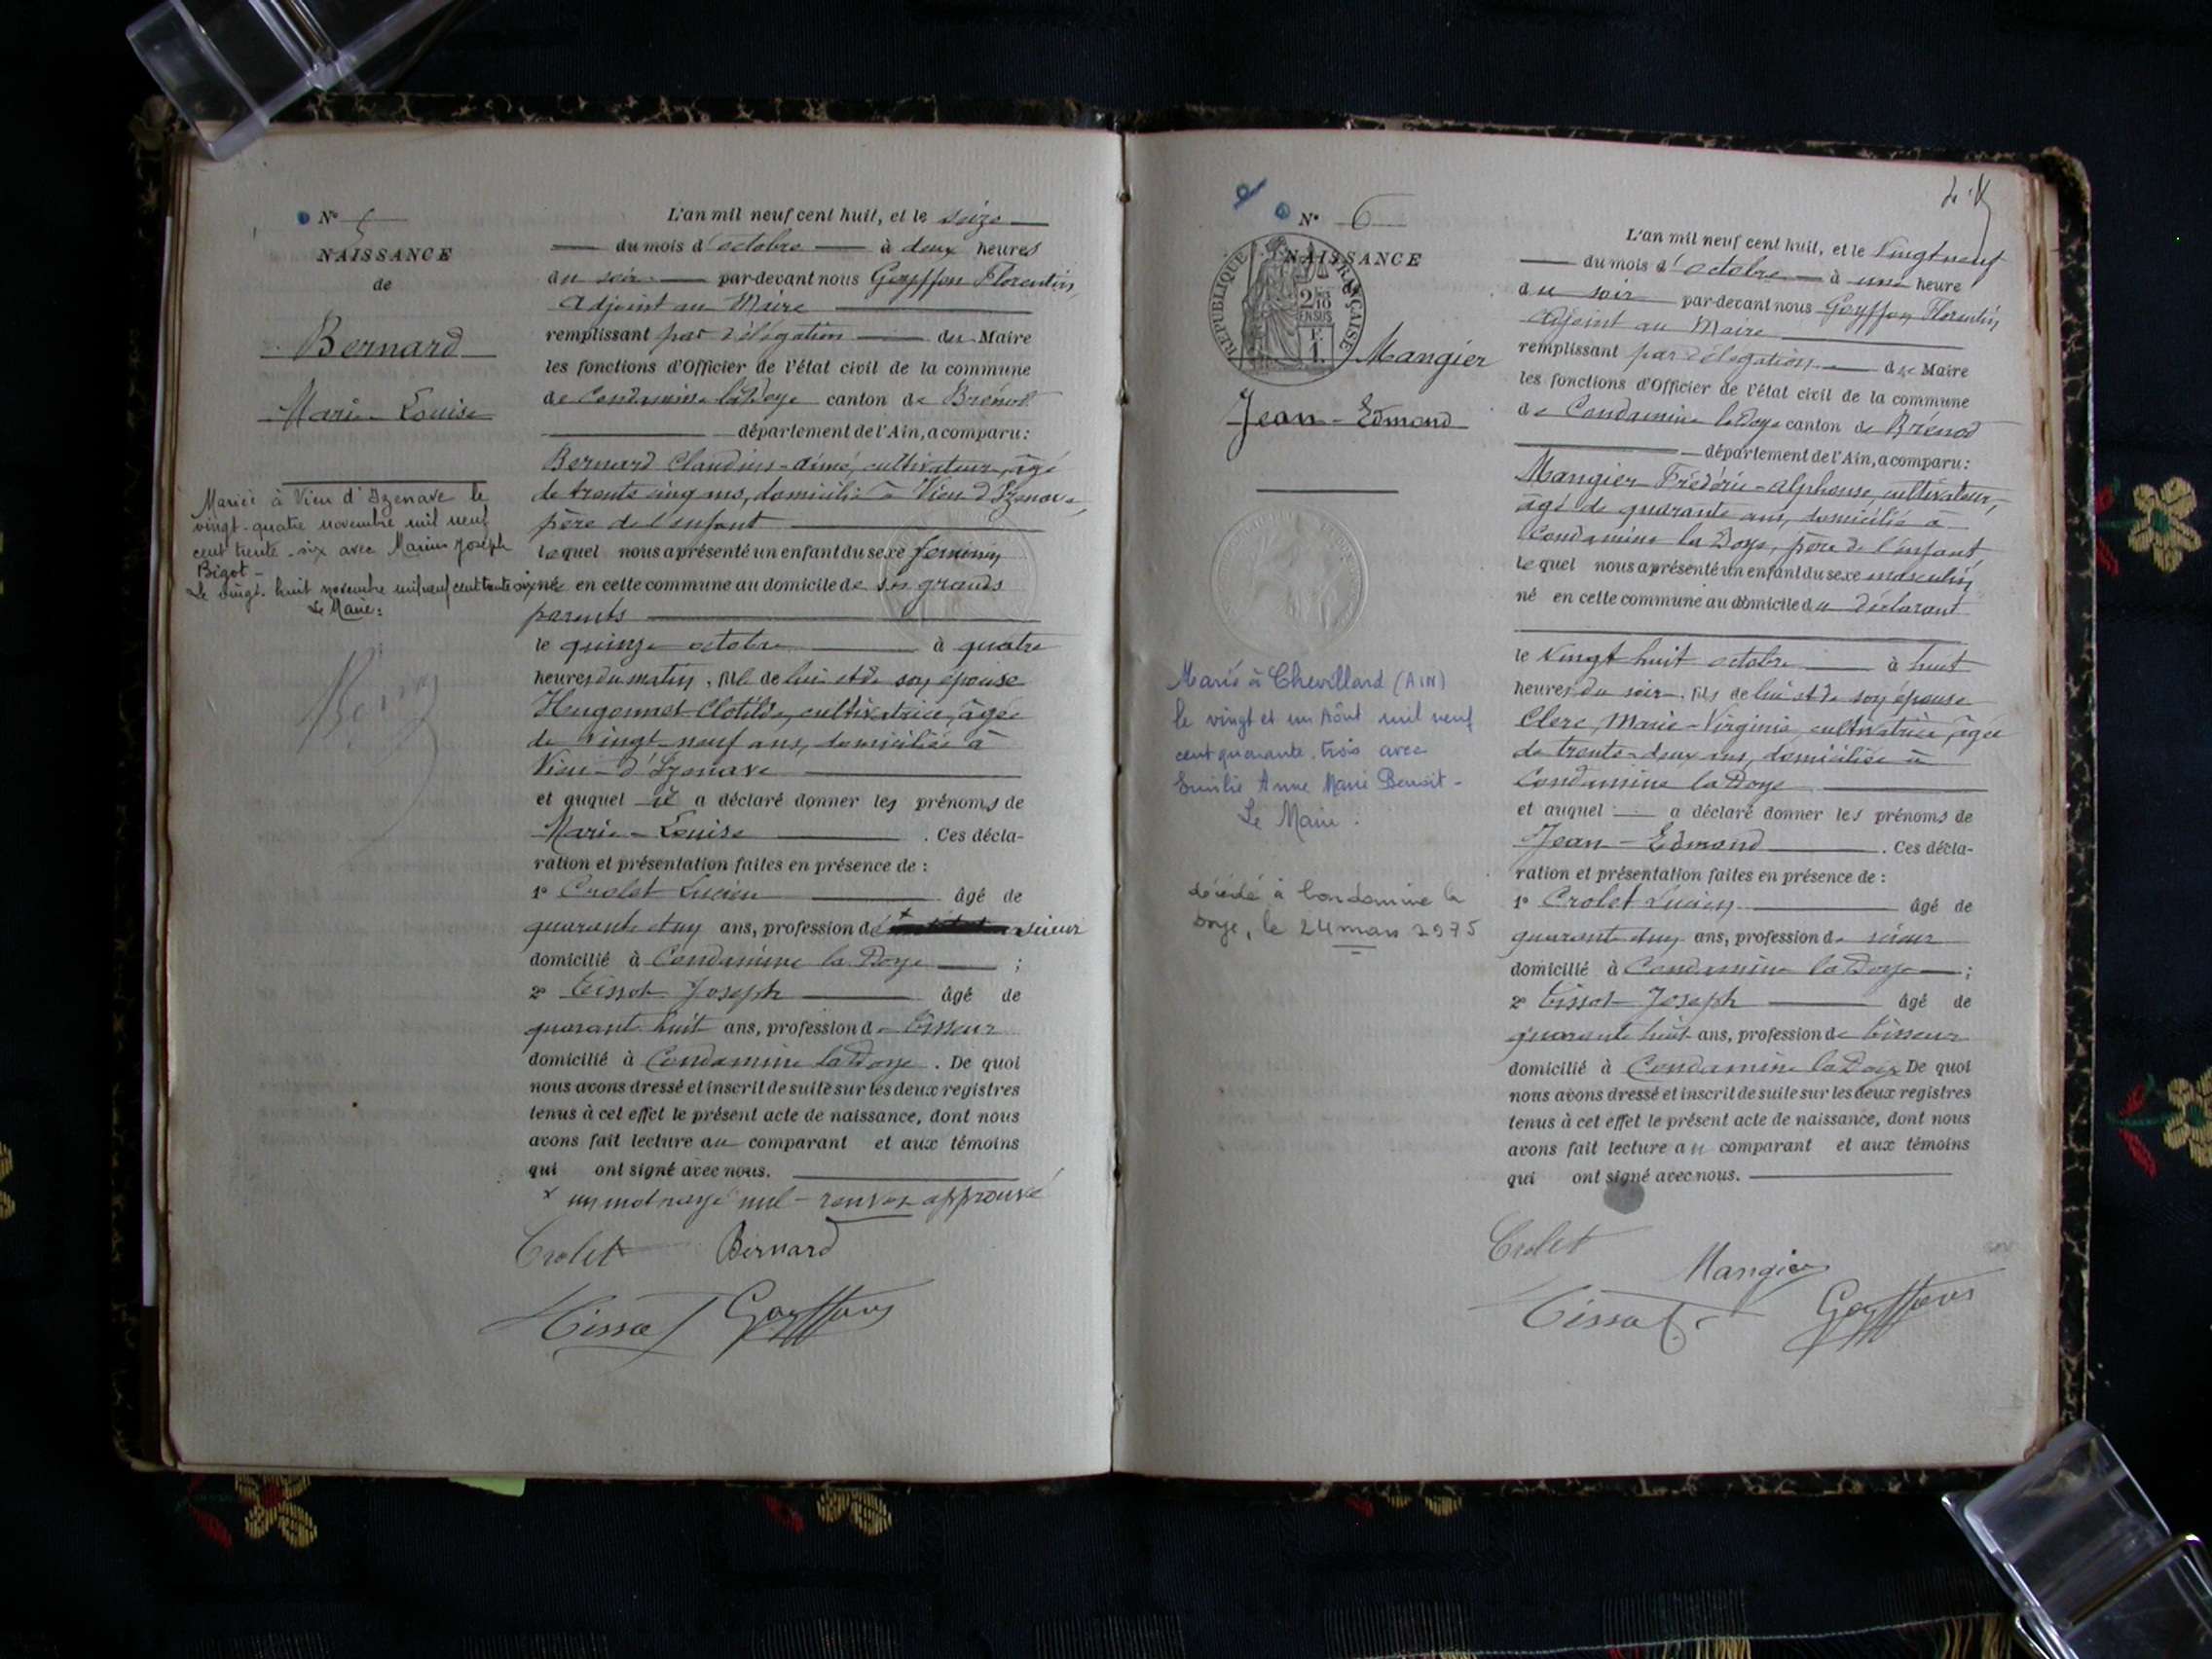 N° 5
NAISSANCE
de
Bernard
Marie-Louise
Mariée à Vieu d'Izenave le
vingt-quatre novembre mil neuf
cent trente-six avec Marius Joseph
Bigot-
Le vingt-huit novembre mil neuf cent trente six
Le Maire:
L'an mil neuf cent huit, et le seize
du mois d'octobre à deux heures
du soir par-devant nous Goyffon Florentin,
Adjoint au Maire
remplissant par délégation du Maire
les fonctions d'Officier de l'état civil de la commune
de Condamine la Doye canton de Brénod
département de l'Ain, a comparu:
Bernard Claudius-Aimé, cultivateur, âgé
de trente cinq ans, domicilié à Vieu d'Izenave,
père de l'enfant
lequel nous a présenté un enfant du sexe féminin
né en cette commune au domicile de ses grands
parents
le quinze octobre à quatre
heures du matin, fille de lui et de son épouse
Hugonnet Clotilde, cultivatrice, âgée
de vingt-neuf ans, domiciliée à
Vieu-d'Izenave
et auquel il a déclaré donner les prénoms de
Marie-Louise . Ces décla-
ration et présentation faites en présence de :
1° Crolet Lucien âgé de
quarante et un ans, profession de scieur
domicilié à Condamine la Doye ;
2° Tissot Joseph âgé de
quarante huit ans, profession de tisseur
domicilié à Condamine la Doye . De quoi
nous avons dressé et inscrit de suite sur les deux registres
tenus à cet effet le présent acte de naissance, dont nous
avons fait lecture au comparant et aux témoins
qui ont signé avec nous.
x un mot rayé nul - renvoi approuvé
Crolet Bernard
Tissot Goyffon
N° 6
NAISSANCE
RÉPUBLIQUE FRANÇAISE
2/10
EN SUS
1 F.
Mangier
Jean-Edmond
Marié à Chevillard (AIN)
le vingt et un Août mil neuf
cent quarante-trois avec
Emilie Anne Marie Benoit-
Le Maire:
décédé à Condamine la
Doye, le 24 mars 1975
L'an mil neuf cent huit, et le vingt neuf
du mois d'octobre à une heure
du soir par-devant nous Goyffon Florentin
Adjoint au Maire
remplissant par délégation du Maire
les fonctions d'Officier de l'état civil de la commune
de Condamine la Doye canton de Brénod
département de l'Ain, a comparu:
Mangier Frédéric-Alphonse, cultivateur,
âgé de quarante ans, domicilié à
Condamine la Doye, père de l'enfant
lequel nous a présenté un enfant du sexe masculin
né en cette commune au domicile du déclarant
le vingt huit octobre à huit
heures du soir, fils de lui et de son épouse
Clerc, Marie-Virginie, cultivatrice, âgée
de trente-deux ans, domiciliée à
Condamine la Doye
et auquel a déclaré donner les prénoms de
Jean-Edmond . Ces décla-
ration et présentation faites en présence de :
1° Crolet Lucien âgé de
quarante et un ans, profession de scieur
domicilié à Condamine la Doye ;
2° Tissot Joseph âgé de
quarante huit ans, profession de tisseur
domicilié à Condamine la Doye De quoi
nous avons dressé et inscrit de suite sur les deux registres
tenus à cet effet le présent acte de naissance, dont nous
avons fait lecture au comparant et aux témoins
qui ont signé avec nous.
Crolet
Mangier
Tissot Goyffon